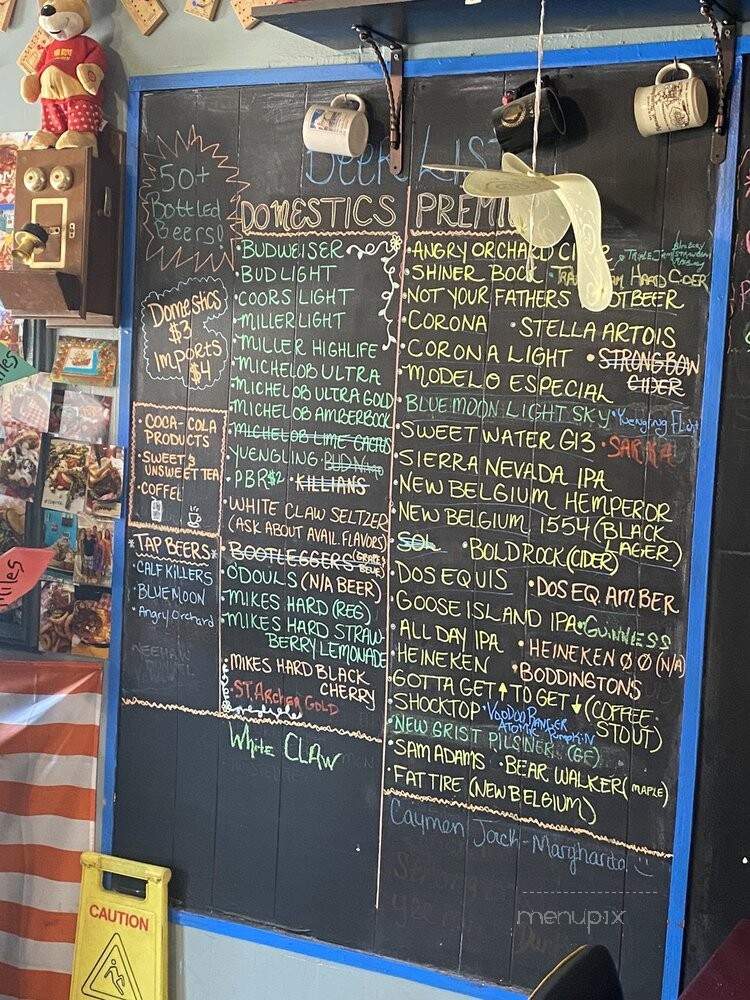 Beer List
50+
Bottled
Beers!
Domestics
$3
Imports
$4
• COCA-COLA
PRODUCTS
• SWEET &
UNSWEET TEA
• COFFEE
*TAP BEERS*
• CALFKILLERS
• BLUE MOON
• Angry Orchard
YEEHAW
DOMESTICS
• BUDWEISER
• BUD LIGHT
• COORS LIGHT
• MILLER LIGHT
• MILLER HIGHLIFE
• MICHELOB ULTRA
• MICHELOB ULTRA GOLD
• MICHELOB AMBERBOCK
• MICHELOB LIME CACTUS
• YUENGLING
• PBR $2 • KILLIANS
• WHITE CLAW SELTZER
(ASK ABOUT AVAIL FLAVORS)
• BOOTLEGGERS (GRAPE &
BLUE)
• O'DOULS (N/A BEER)
• MIKES HARD (REG)
• MIKES HARD STRAW-
BERRY LEMONADE
• MIKES HARD BLACK
CHERRY
• ST Archer GOLD
White CLAW
PREMI
• ANGRY ORCHARD
• SHINER BOCK HARD CIDER
• NOT YOUR FATHERS OTBEER
• CORONA • STELLA ARTOIS
• CORONA LIGHT • STRONGBOW
CIDER
• MODELO ESPECIAL
• BLUE MOON LIGHT SKY • Yuengling Flight
• SWEET WATER G13
• SIERRA NEVADA IPA
• NEW BELGIUM HEMPEROR
• NEW BELGIUM 1554 (BLACK
LAGER)
• SOL • BOLD ROCK (CIDER)
• DOS EQUIS • DOS EQ. AMBER
• GOOSE ISLAND IPA • GUINNESS
• ALL DAY IPA • HEINEKEN 00 (N/A)
• HEINEKEN • BODDINGTONS
• GOTTA GET ↑ TO GET ↓ (COFFEE
STOUT)
• SHOCKTOP • VOODOO RANGER
ATOMIC Pumpkin
• NEW GRIST PILSINER (GF)
• SAM ADAMS • BEAR WALKER (MAPLE)
• FAT TIRE (NEW BELGIUM)
Caymen Jack - Margharita
menupix
CAUTION